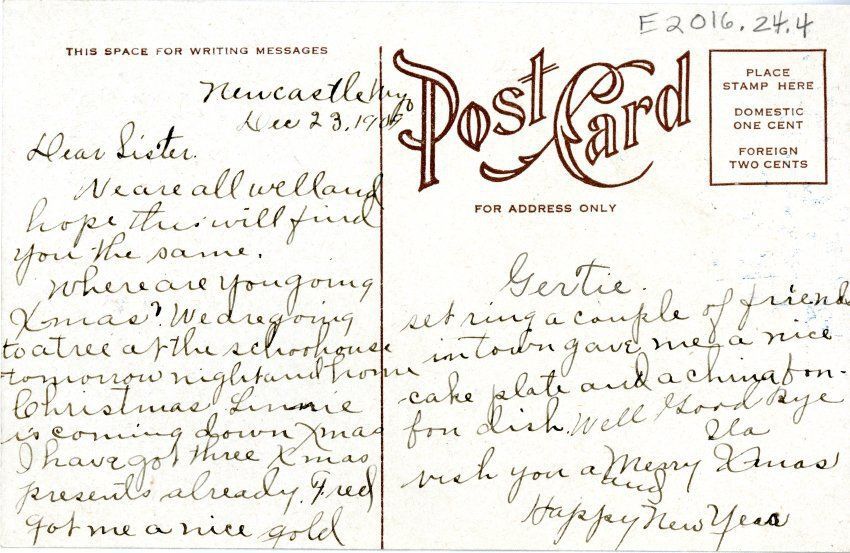 E2016.24.4
THIS SPACE FOR WRITING MESSAGES
Post Card
PLACE
STAMP HERE
DOMESTIC
ONE CENT
FOREIGN
TWO CENTS
FOR ADDRESS ONLY
Newcastle Wyo
Dec 23, 1909
Dear Sister.
We are all well and
hope this will find
you the same.
Where are you going
Xmas? We are going
to a tree at the schoohouse
tomorrow night and home
Christmas Linnie
is coming down Xmas
I have got three Xmas
presents already. Fred
got me a nice gold
Gertie.
set ring a couple of friends
in town gave me a nice
cake plate and a china bon-
bon dish. Well Good Bye
Ila
wish you a Merry Xmas
and
Happy New Year